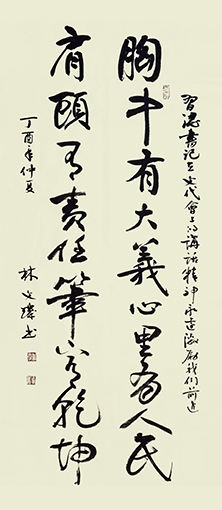 习总书记在文代会上的讲话精神永远激励我们前进
胸中有大義心里有人民
肩頭有责任筆底乾坤
丁酉年仲夏
林文瑋书